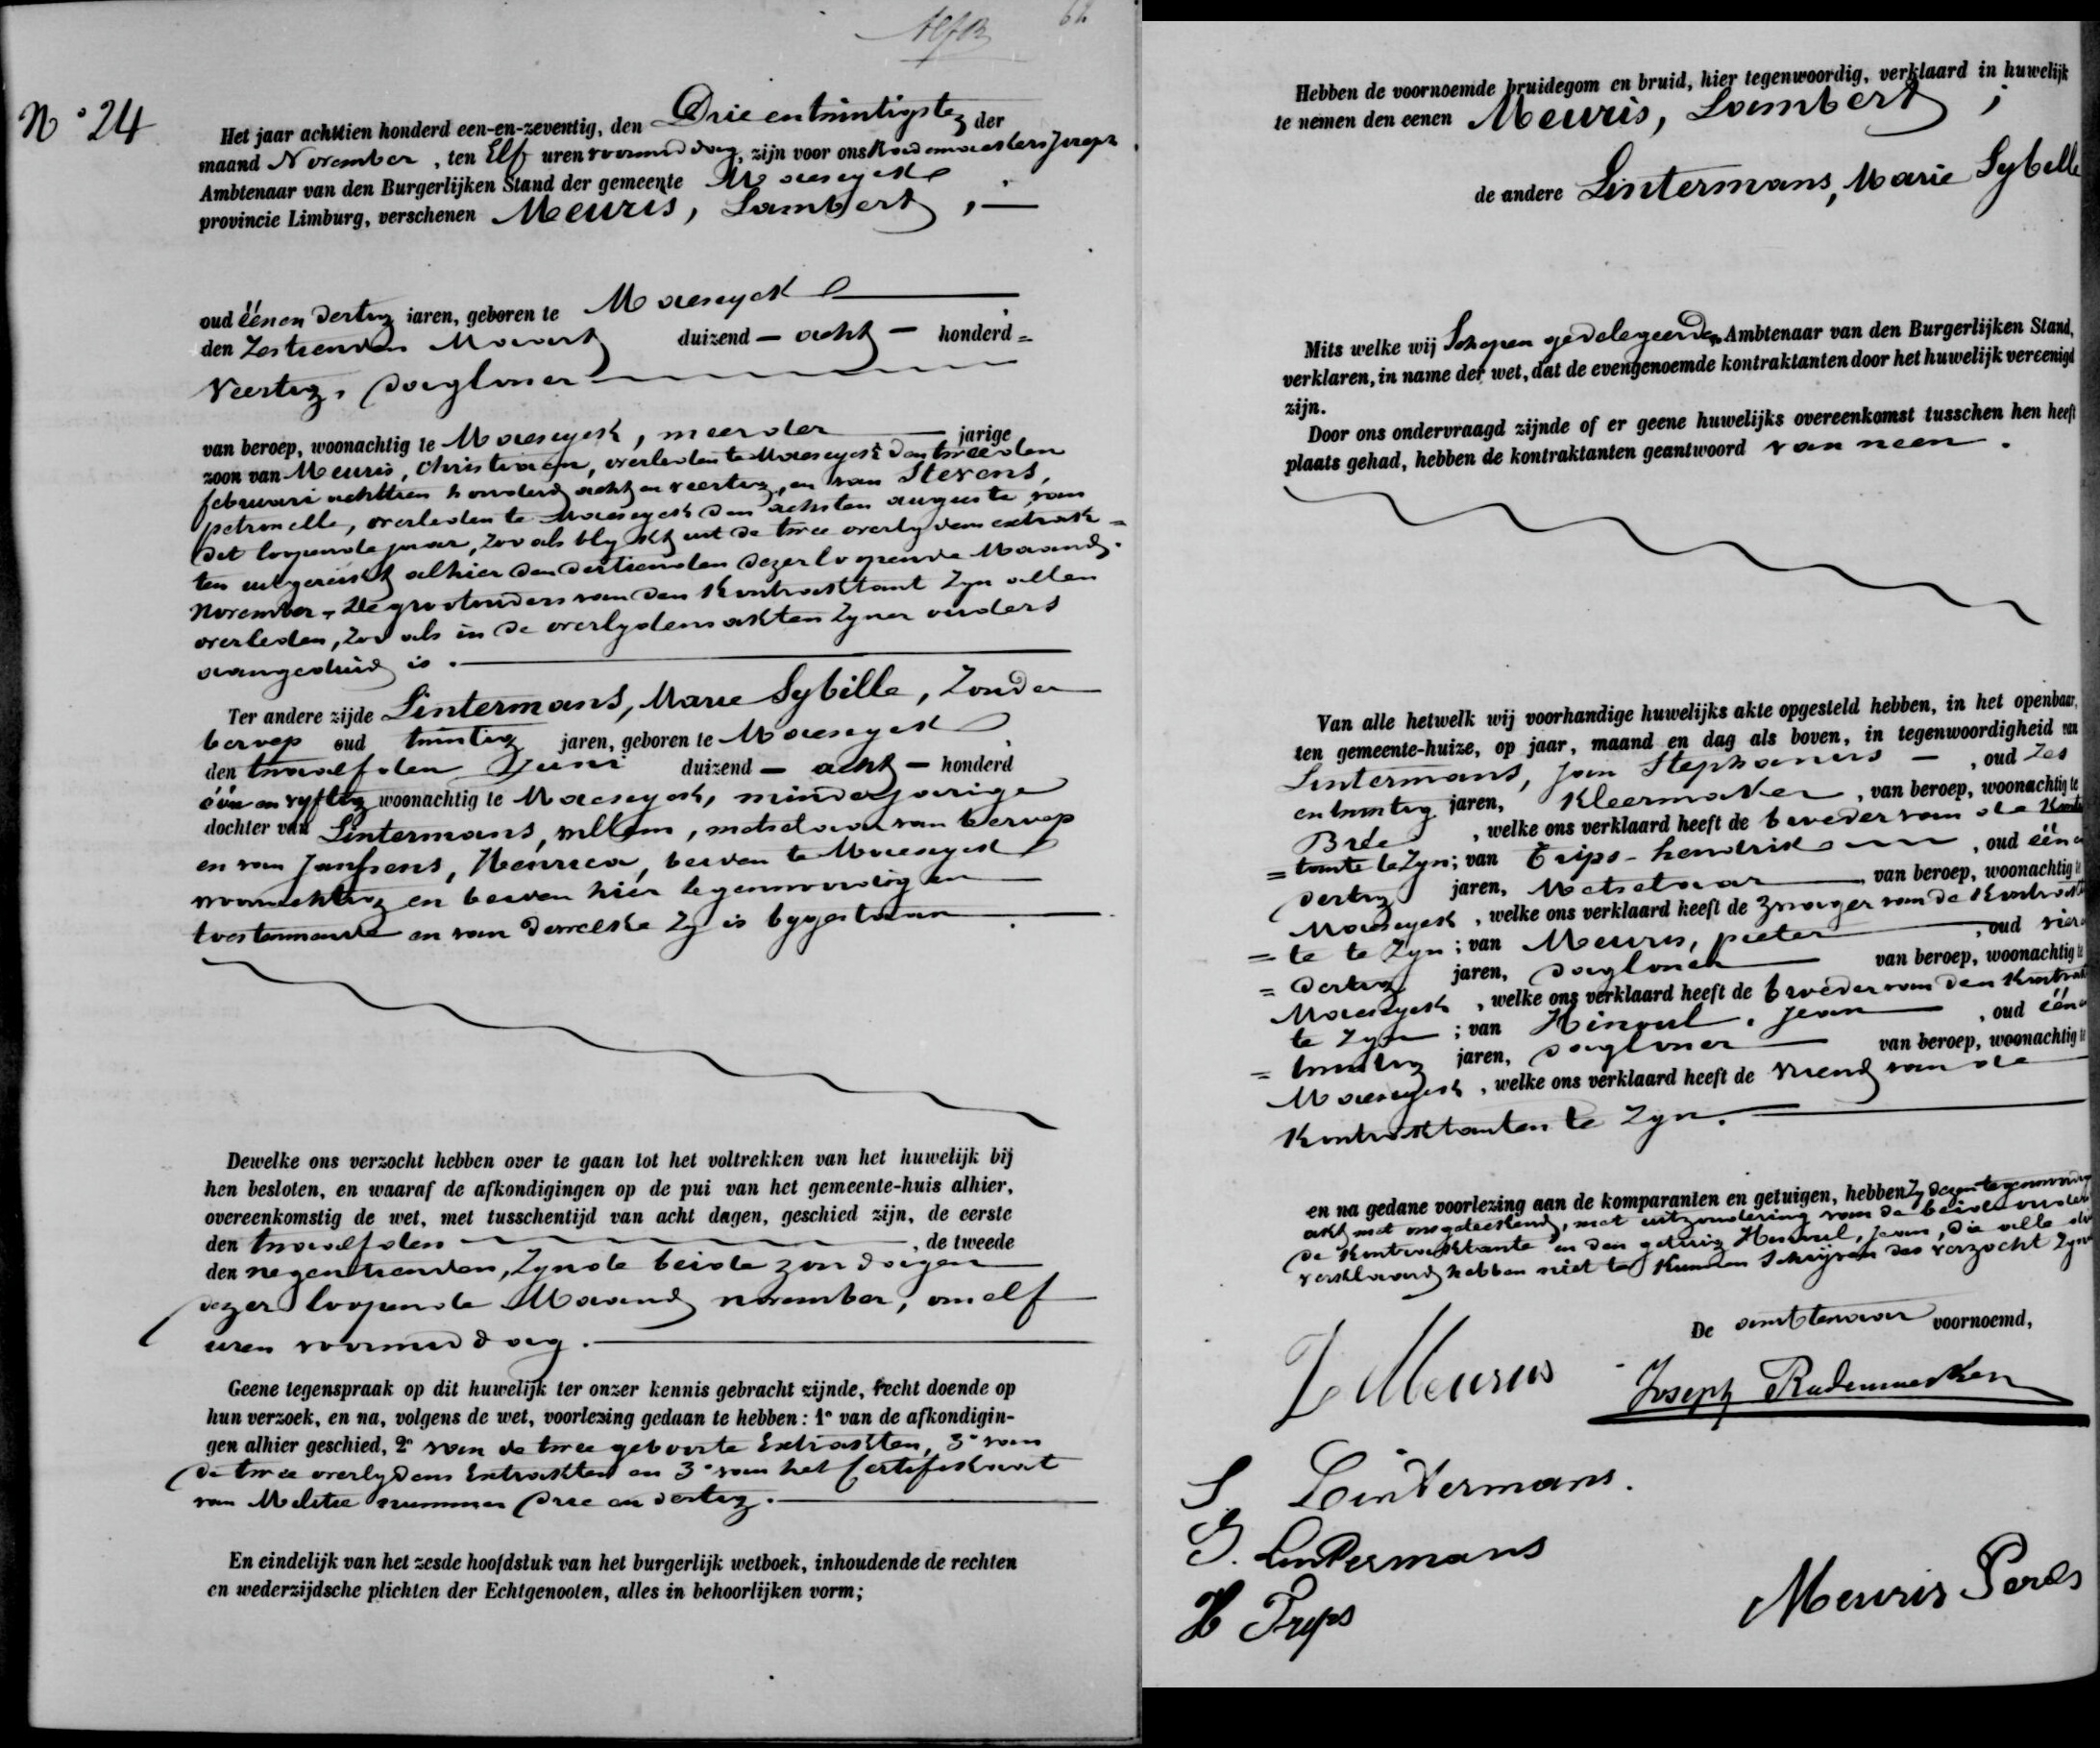 62
N° 24
Het jaar achttien honderd een-en-zeventig, den Drie entwintigste der
maand November, ten Elf uren voormiddag, zijn voor ons Rademaekers Joseph
Ambtenaar van den Burgerlijken Stand der gemeente Maeseyck
provincie Limburg, verschenen Meuris, Lambert, —
oud éénen dertig jaren, geboren te Maeseyck
den Zestienden Maart duizend — acht — honderd =
veertig, dagloner
van beroep, woonachtig te Maeseyck, meerder jarige
zoon van Meuris, Christiaen, overleden te Maeseyck den tweeden
februari achttien honderd acht en veertig, en van Stevens,
petronella, overleden te Maeseyck den achsten auguste van
dit loopende jaar, zoo als blykt uit de twee overlydens extrak =
ten uitgereikt alhier den dertienden dezer loopende Maand
November. De grootouders van den Kontraktant zyn allen
overleden, zoo als in de overlydens akten zyner ouders
aangeduid is.
Ter andere zijde Lintermans, Marie Sybille, Zonder
beroep oud twintig jaren, geboren te Maeseyck
den twaalfden Juni duizend — acht — honderd
één en vyftig woonachtig te Maeseyck, minderjarige
dochter van Lintermans, willem, metselaar van beroep
en van Janssens, Henrica, beiden te Maeseyck
woonachtig en beiden hier tegenwoordig en
toestemmende en van dewelke zy is bygestaan
Dewelke ons verzocht hebben over te gaan tot het voltrekken van het huwelijk bij
hen besloten, en waaraf de afkondigingen op de pui van het gemeente-huis alhier,
overeenkomstig de wet, met tusschentijd van acht dagen, geschied zijn, de eerste
den twaalfden, de tweede
den negentienden, Zynde beide zondagen
dezer loopende Maand november, om elf
uren voormiddag.
Geene tegenspraak op dit huwelijk ter onzer kennis gebracht zijnde, recht doende op
hun verzoek, en na, volgens de wet, voorlezing gedaan te hebben: 1° van de afkondigin-
gen alhier geschied, 2° van de twee geboorte Extrakten, 3° van
de twee overlydens Extrakten en 3° van het Certifikaat
van Militie nummer drie en dertig.
En eindelijk van het zesde hoofdstuk van het burgerlijk wetboek, inhoudende de rechten
en wederzijdsche plichten der Echtgenooten, alles in behoorlijken vorm;
Hebben de voornoemde bruidegom en bruid, hier tegenwoordig, verklaard in huwelijk
te nemen den eenen Meuris, Lambert;
de andere Lintermans, Marie Sybille
Mits welke wij Schepen gedelegeerden Ambtenaar van den Burgerlijken Stand,
verklaren, in name der wet, dat de evengenoemde kontraktanten door het huwelijk vereenigd
zijn.
Door ons ondervraagd zijnde of er geene huwelijks overeenkomst tusschen hen heeft
plaats gehad, hebben de kontraktanten geantwoord van neen.
Van alle hetwelk wij voorhandige huwelijks akte opgesteld hebben, in het openbaar,
ten gemeente-huize, op jaar, maand en dag als boven, in tegenwoordigheid van
Lintermans, Jan Stephanus —, oud zes
en twintig jaren, Kleermaker, van beroep, woonachtig te
Brée, welke ons verklaard heeft de broeder van de Kontr
= tante te zyn; van Trips - hendrik, oud één e
dertig jaren, Metselaar van beroep, woonachtig te
Maeseyck, welke ons verklaard heeft de zwager van de Kontrakt
= te te zyn; van Meuris, pieter, oud vier
= dertig jaren, dagloner van beroep, woonachtig te
Maeseyck, welke ons verklaard heeft de broeder van den Kontrak
te zyn; van Hinoul, Jean, oud één
= twintig jaren, dagloner van beroep, woonachtig te
Maeseyck, welke ons verklaard heeft de vriend van de
Kontraktanten te zyn.
en na gedane voorlezing aan de komparanten en getuigen, hebben zy dezen tegenwoordig
akt met ons geteekend, met uitzondering van de beide ouders
de Kontraktante en den getuig Hinoul, Jean, die alle
verklaard hebben niet te kunnen schryven des verzocht zyn
De ambtenaar voornoemd,
L Meuris
Joseph Rademaekers
S Lintermans.
G. Lintermans
H Trips
Meuris